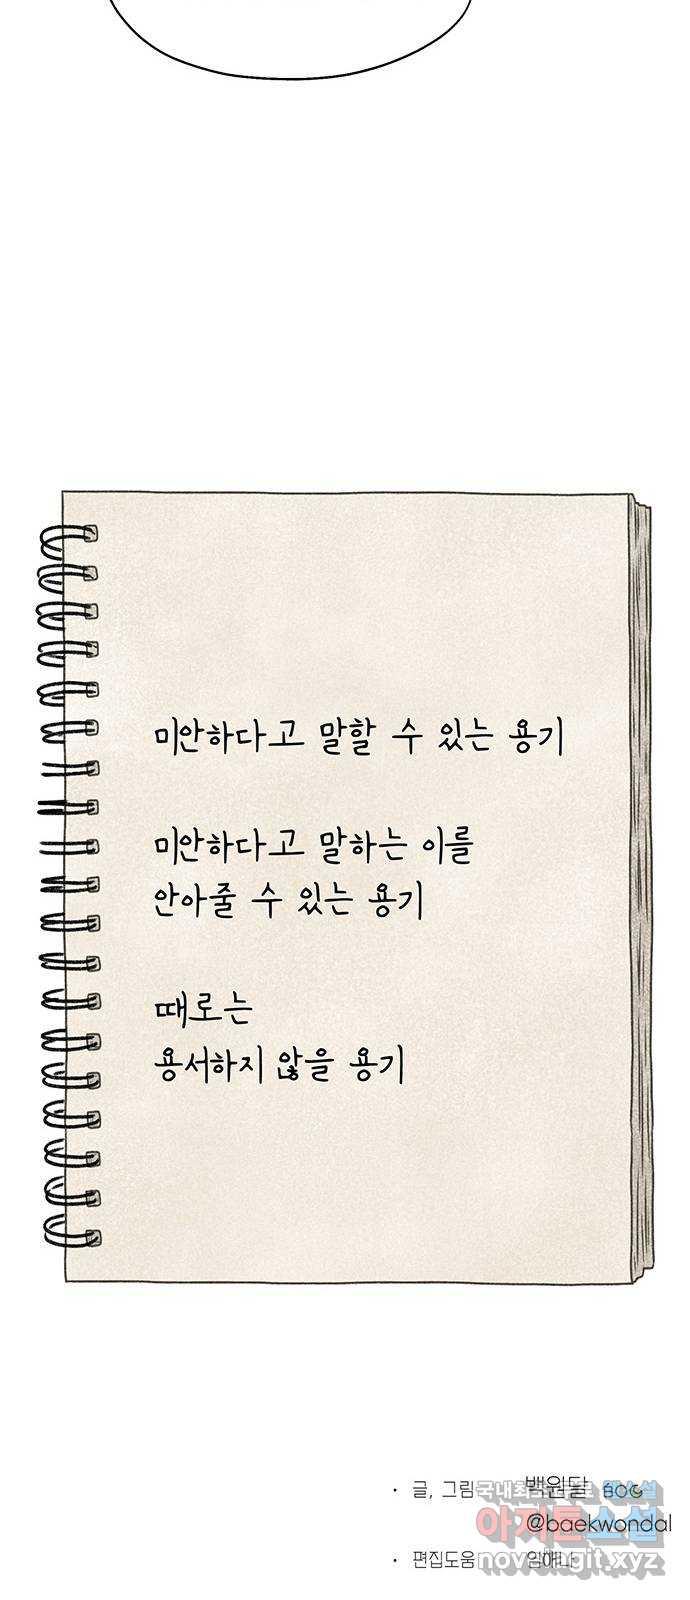 미안하다고 말할 수 있는 용기
미안하다고 말하는 이를
안아줄 수 있는 용기
때로는
용서하지 않을 용기
• 글, 그림 백원달
@baekwondal
• 편집도움 임애나
아지툰소설
novelagit.xyz